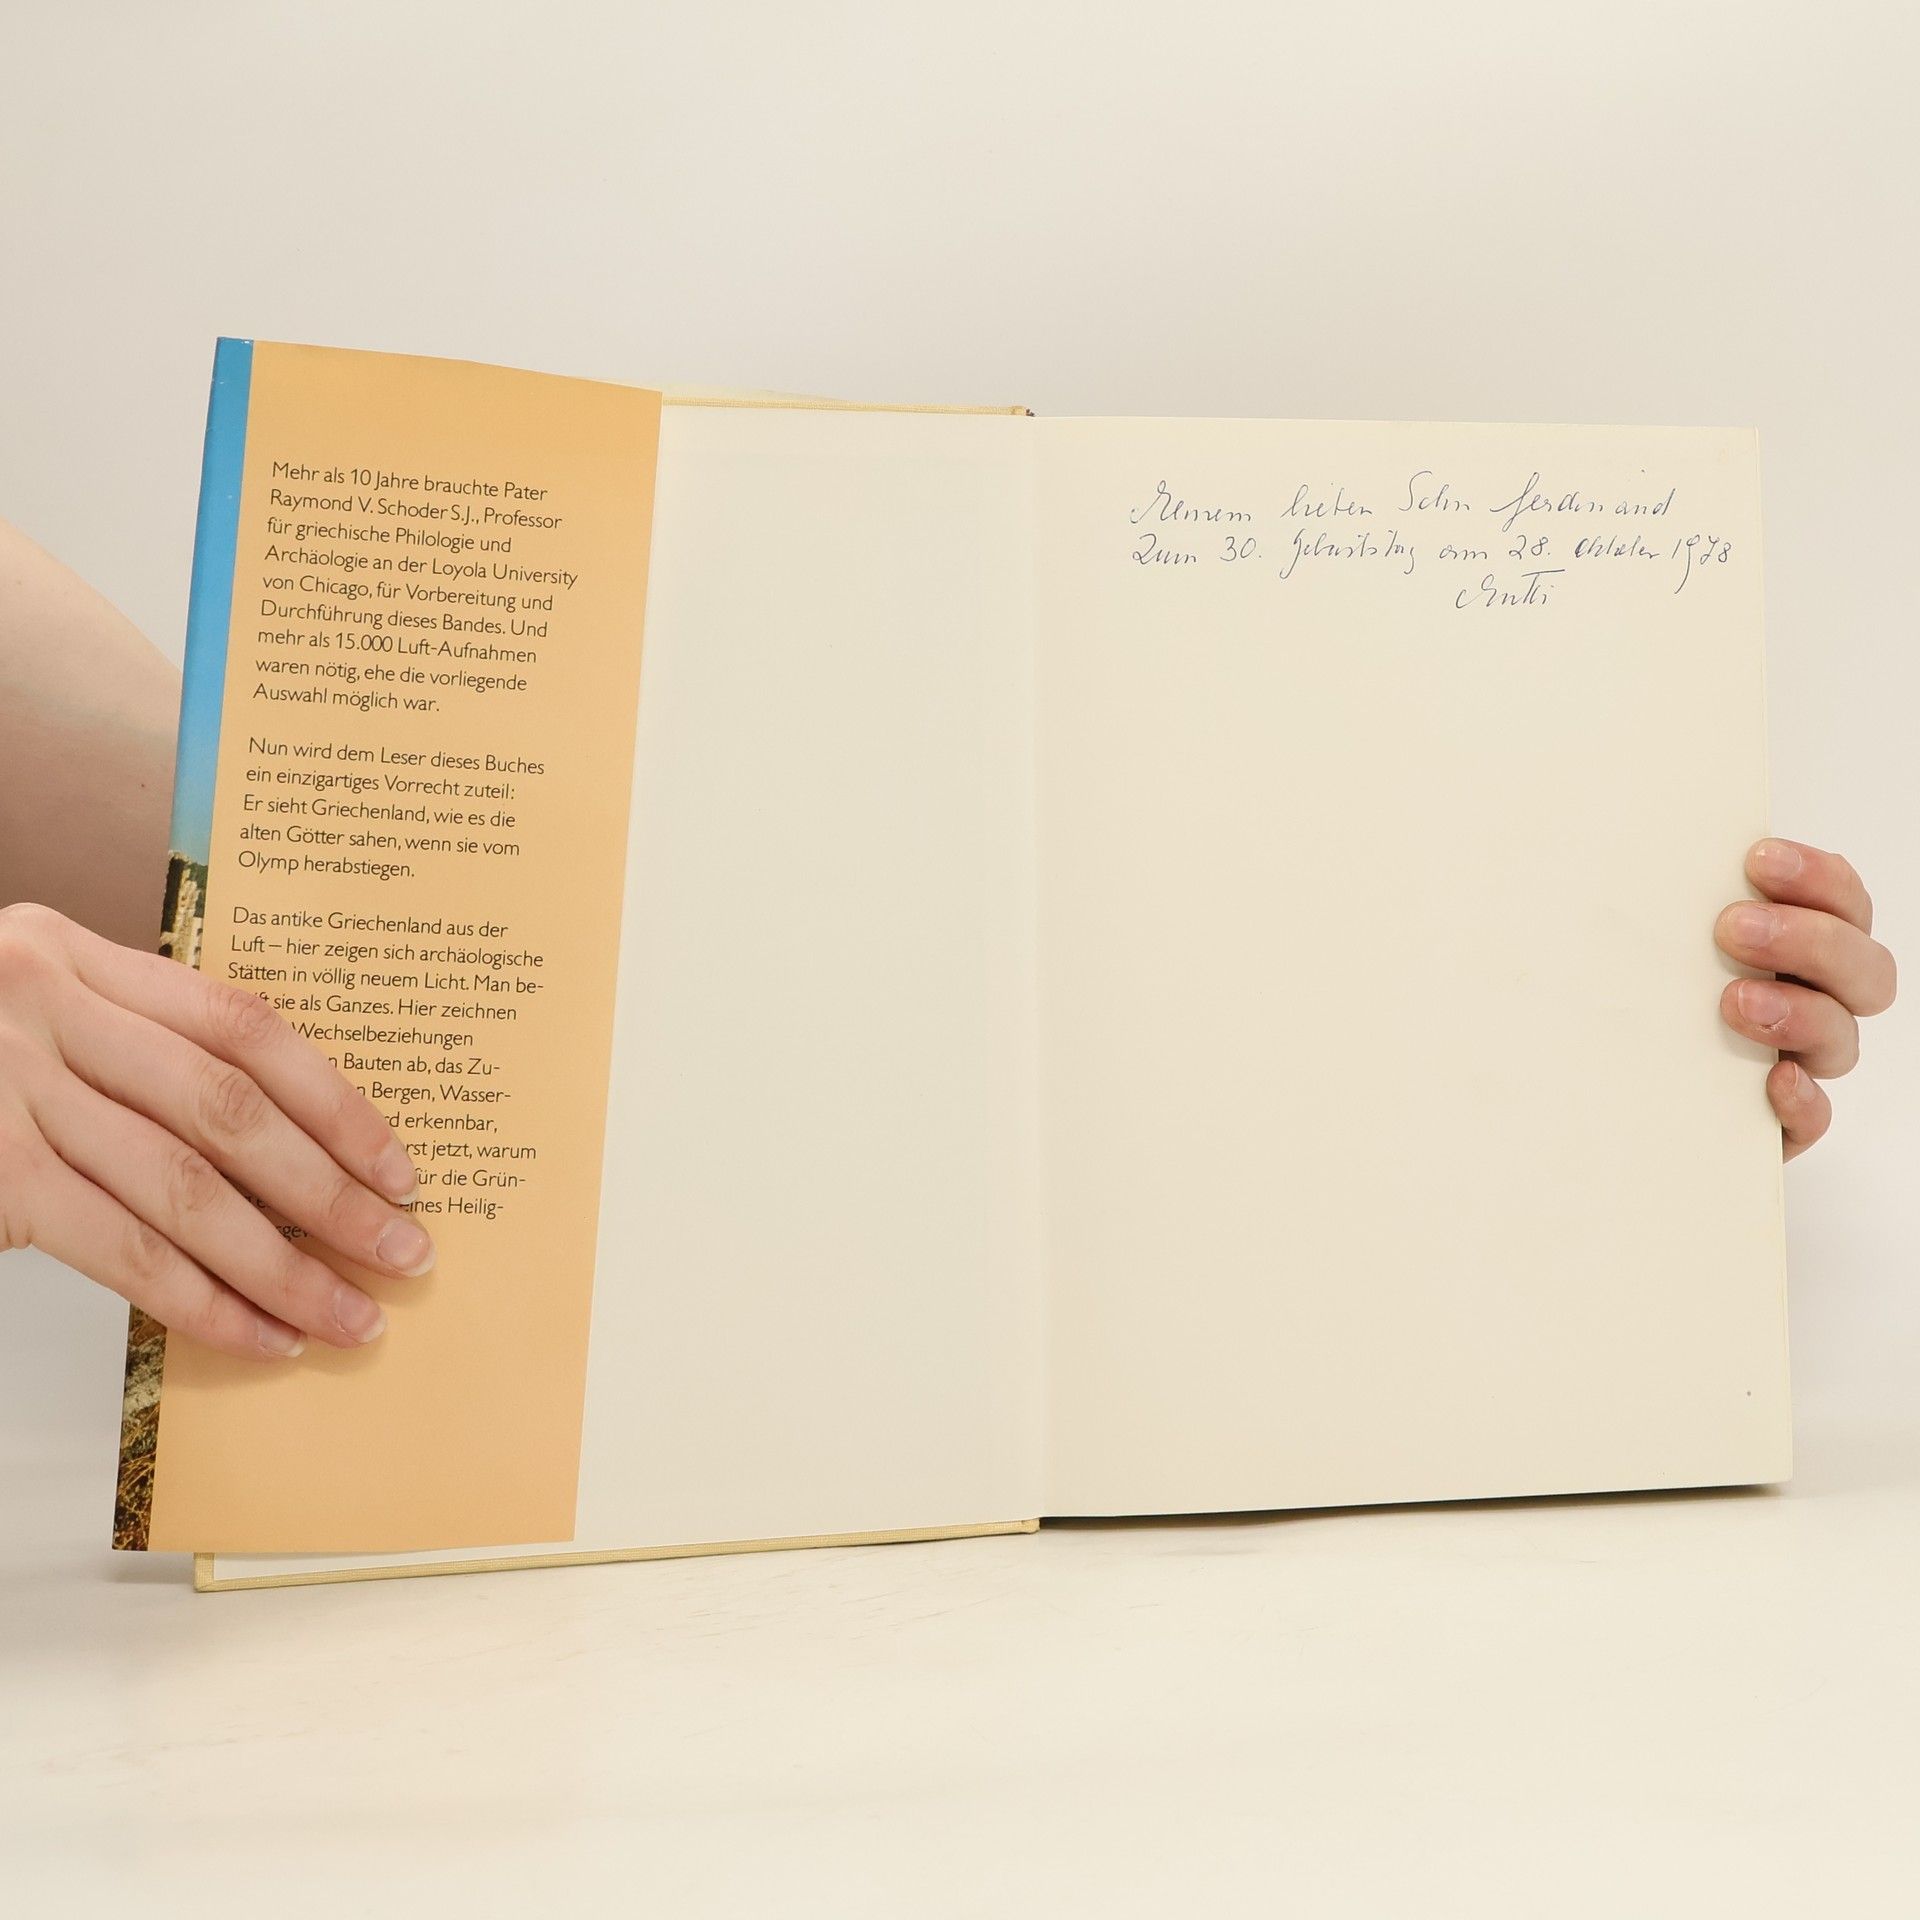 Mehr als 10 Jahre brauchte Pater
Raymond V. Schoder S.J., Professor
für griechische Philologie und
Archäologie an der Loyola University
von Chicago, für Vorbereitung und
Durchführung dieses Bandes. Und
mehr als 15.000 Luft-Aufnahmen
waren nötig, ehe die vorliegende
Auswahl möglich war.
Nun wird dem Leser dieses Buches
ein einzigartiges Vorrecht zuteil:
Er sieht Griechenland, wie es die
alten Götter sahen, wenn sie vom
Olymp herabstiegen.
Das antike Griechenland aus der
Luft – hier zeigen sich archäologische
Stätten in völlig neuem Licht. Man be-
sie als Ganzes. Hier zeichnen
Wechselbeziehungen
Bauten ab, das Zu-
Bergen, Wasser-
erkennbar,
jetzt, warum
für die Grün-
eines Heilig-
Meinem lieben Sohn Ferdinand
Zum 30. Geburtstag am 28. Oktober 1978
Mutti